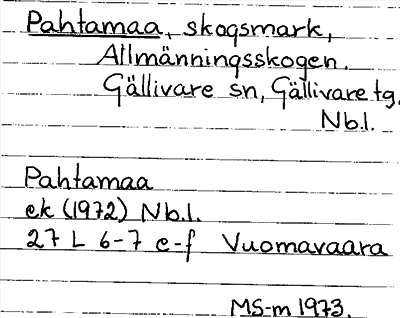 Pahtamaa, skogsmark,
Allmänningsskogen.
Gällivare sn, Gällivare tg.
Nb.l.
Pahtamaa
ek (1972) Nb.l.
27 L 6-7 e-f Vuomavaara
MS-m 1973.